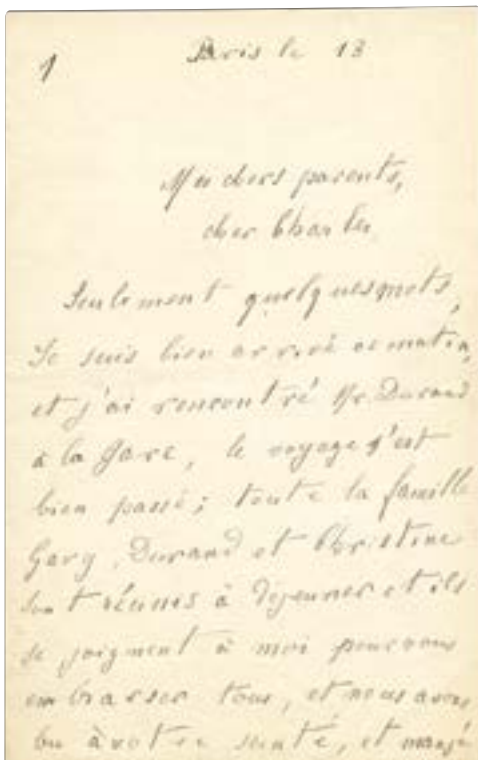 1
Paris le 13
Mes chers parents,
cher Charles
Seulement quelques mots,
Je suis bien arrivé ce matin,
et j'ai rencontré Mr. Durand
à la gare, le voyage s'est
bien passé; toute la famille
Gary, Durand et Christine
sont réunis à déjeuner et ils
se joignent à moi pour vous
embrasser tous, et nous avons
bu à votre santé, et mangé